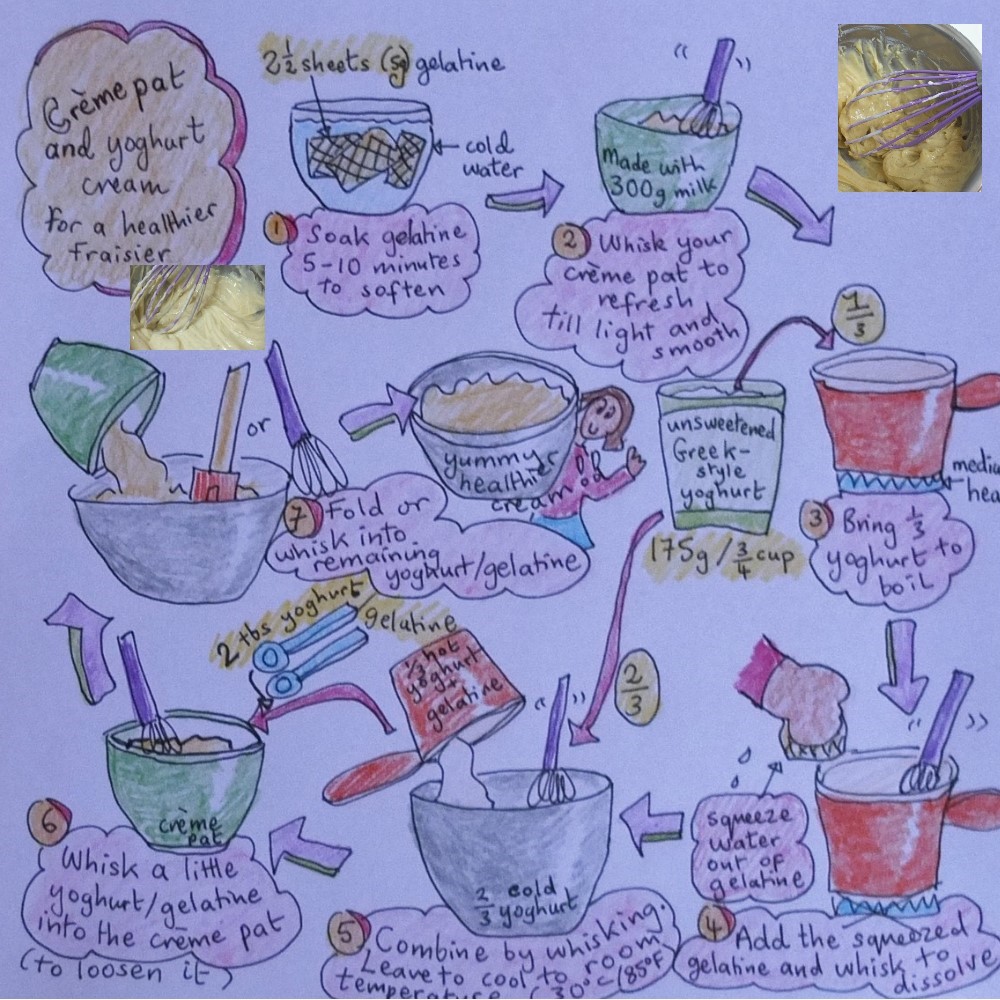 Crème pat
and yoghurt
cream
for a healthier
fraisier
2 1/2 sheets (5g) gelatine
cold
water
1 Soak gelatine
5-10 minutes
to soften
Made with
300g milk
2 Whisk your
crème pat to
refresh
till light and
smooth
1/3
unsweetened
Greek-
style
yoghurt
175g / 3/4 cup
3 Bring 1/3
yoghurt to
boil
squeeze
water
out of
gelatine
4 Add the squeezed
gelatine and whisk to
dissolve
2/3
1/3 hot
yoghurt
+
gelatine
2/3 cold
yoghurt
5 Combine by whisking.
Leave to cool to room
temperature (30°C/85°F
2 tbs yoghurt
gelatine
crème
pat
6 Whisk a little
yoghurt/gelatine
into the crème pat
(to loosen it)
or
7 Fold or
whisk into
remaining
yoghurt/gelatine
yummy
healthier
cream